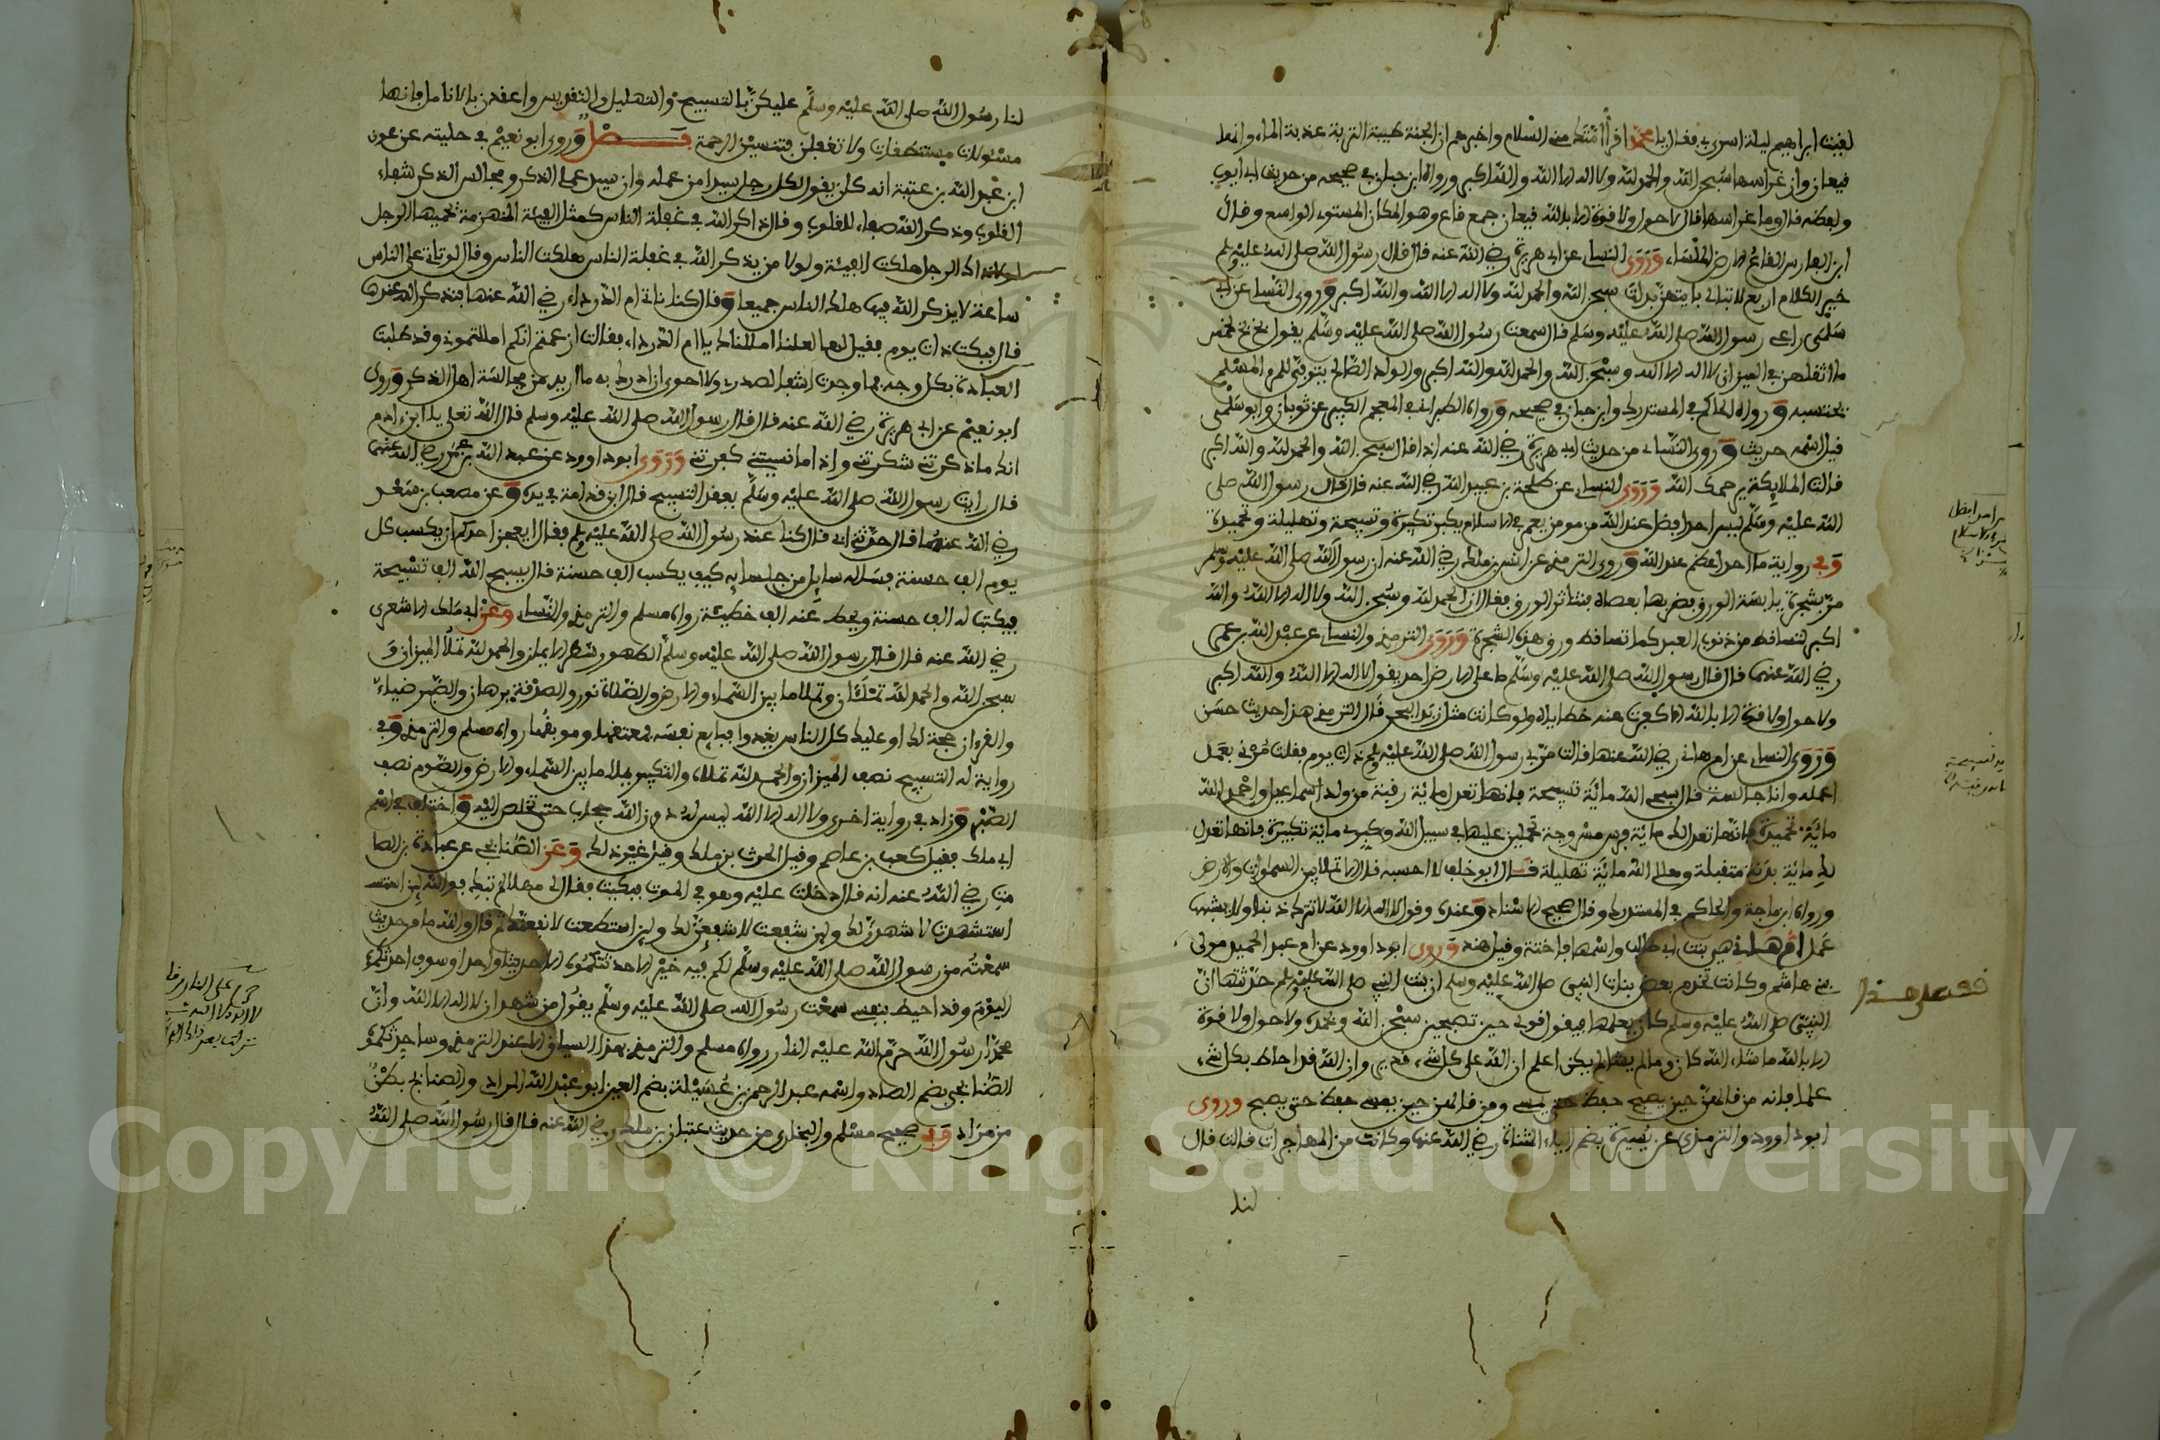 لقيت ابراهيم ليلة اسري بي فقال يا محمد اقرأ امتك مني السلام واخبرهم ان الجنة طيبة التربة عذبة الماء وانها
قيعان وان غراسها سبحن الله والحمد لله ولا اله الا الله والله اكبر ورواه ابن حبان في صحيحه من حديث ابي ايوب
ولفظه قال وما غراسها قال لا حول ولا قوة الا بالله قيعان جمع قاع وهو المكان المستوي الواسع وقال
ابن الفارس القاع الارض الملساء وروى النساي عن ابي هريرة رضي الله عنه قال قال رسول الله صلى الله عليه وسلم
خير الكلام اربع لا تبالي بايتهن بدات سبحن الله والحمد لله ولا اله الا الله والله اكبر وروى النساي عن ابي
سلمى راعي رسول الله صلى الله عليه وسلم قال سمعت رسول الله صلى الله عليه وسلم يقول بخ بخ لخمس
ما اثقلهن في الميزان لا اله الا الله وسبحن الله والحمد لله والله اكبر والولد الصالح يتوفى للمرء المسلم
يحتسبه ورواه الحاكم في المستدرك وابن حبان في صحيحه ورواه الطبراني في المعجم الكبير عن ثوبان وابو سلمى
قيل اسمه حريث وروى النساي من حديث ابي هريرة رضي الله عنه اذا قال سبحن الله والحمد لله والله اكبر
قالت الملايكة يرحمك الله وروى النساي عن طلحة بن عبيد الله رضي الله عنه قال قال رسول الله صلى
الله عليه وسلم ليس احد افضل عند الله من مومن يعمر في الاسلام يكبر تكبيرة وتسبيحة وتهليلة وتحميدة
وفي رواية ما احد اعظم عند الله وروى الترمذي عن انس بن ملك رضي الله عنه ان رسول الله صلى الله عليه وسلم
مر بشجرة يابسة الورق فضربها بعصاه فتناثر الورق فقال ان الحمد لله وسبحن الله ولا اله الا الله والله
اكبر لتساقط من ذنوب العبد كما تساقط ورق هذه الشجرة وروى الترمذي والنساي عن عبد الله بن عمر
رضي الله عنهما قال قال رسول الله صلى الله عليه وسلم ما على الارض احد يقول لا اله الا الله والله اكبر
ولا حول ولا قوة الا بالله الا كفرت عنه خطاياه ولو كانت مثل زبد البحر قال الترمذي هذا حديث حسن
وروى النساي عن ام هاني رضي الله عنها قالت مر بي رسول الله صلى الله عليه وسلم ذات يوم فقلت مرني بعمل
اعمله وانا جالسة قال سبحي الله مائة تسبيحة فانها تعدل مائة رقبة من ولد اسماعيل واحمدي الله
مائة تحميدة فانها تعدل لك مائة فرس مسرجة تحملين عليها في سبيل الله وكبري مائة تكبيرة فانها تعدل
لك مائة بدنة متقبلة وهللي الله مائة تهليلة قال ابو خلف لا احسبه قال الا تملا بين السموات والارض
ورواه ابن ماجة والحاكم في المستدرك وقال صحيح الاسناد وعنده وقول لا اله الا الله لا تترك ذنبا ولا يشبهها
عمل ام هاني هي بنت ابي طالب واسمها فاختة وقيل هند وروى ابو داوود عن ام عبد الحميد مولى
بني هاشم وكانت تخدم بعض بنات النبي صلى الله عليه وسلم ان بنت النبي صلى الله عليه وسلم حدثتها ان
النبي صلى الله عليه وسلم كان يعلمها فيقول قولي حين تصبحين سبحن الله وبحمده ولا حول ولا قوة
الا بالله ما شاء الله كان وما لم يشا لم يكن اعلم ان الله على كل شيء قدير وان الله قد احاط بكل شيء
علما فانه من قالهن حين يصبح حفظ حتى يمسي ومن قالهن حين يمسي حفظ حتى يصبح وروى
ابو داوود والترمذي عن يسيرة بضم الياء المثناة رضي الله عنها وكانت من المهاجرات قالت قال
لنا
لنا رسول الله صلى الله عليه وسلم عليكن بالتسبيح والتهليل والتقديس واعقدن بالانامل فانها
مسئولات مستنطقات ولا تغفلن فتنسين الرحمة فصل وروى ابو نعيم في حليته عن عون
ابن عبد الله بن عتبة انه كان يقول لكل رجل سيدا من عمله وان سيد عملي الذكر ومجالس الذكر شفاء
القلوب وذكر الله صفاء للقلوب وقال ذاكر الله في غفلة الناس كمثل الفيئة المنهزمة يحميها الرجل
لولا ذلك الرجل هلكت الفيئة ولولا من يذكر الله في غفلة الناس هلكت الناس وقال لو تاتي على الناس
ساعة لا يذكر الله فيها هلك الناس جميعا وقال كنا ناتي ام الدرداء رضي الله عنها فنذكر الله عندها
قال فبكت ذات يوم فقيل لها لعلنا امللناك يا ام الدرداء فقالت ازعمتم انكم امللتموني وقد طلبت
العبادة بكل وجه فما وجدت اشفا لصدري ولا احرى ان ادرك به ما اريد من مجالسة اهل الذكر وروى
ابو نعيم عن ابي هريرة رضي الله عنه قال قال رسول الله صلى الله عليه وسلم قال الله تعلى يا ابن ءادم
انك ما ذكرتني شكرتني واذا ما نسيتني كفرتني وروى ابو داوود عن عبد الله بن عمر رضي الله عنهما
قال رايت رسول الله صلى الله عليه وسلم يعقد التسبيح قال ابن قدامة في يده وعن مصعب بن سعد
رضي الله عنهما قال حدثني ابي قال كنا عند رسول الله صلى الله عليه وسلم فقال ايعجز احدكم ان يكسب كل
يوم الف حسنة فساله سايل من جلسايه كيف يكسب الف حسنة قال يسبح الله الف تسبيحة
فيكتب له الف حسنة ويحط عنه الف خطيئة رواه مسلم والترمذي والنساي وعن ابي ملك الاشعري
رضي الله عنه قال قال رسول الله صلى الله عليه وسلم الطهور شطر الايمان والحمد لله تملا الميزان و
سبحن الله والحمد لله تملئان وتملا ما بين السماء والارض والصلاة نور والصدقة برهان والصبر ضياء
والقرءان حجة لك او عليك كل الناس يغدوا فبايع نفسه فمعتقها وموبقها رواه مسلم والترمذي وفي
رواية له التسبيح نصف الميزان والحمد لله تملاه والتكبير يملا ما بين السماء والارض والصوم نصف
الصبر وزاد في رواية اخرى ولا اله الا الله ليس له دون الله حجاب حتى تخلص اليه واختلف في اسم
ابي ملك فقيل كعب بن عاصم وقيل الحرث بن ملك وقيل غير ذلك وعن الصنابحي عن عبادة بن الصا
مت رضي الله عنه انه قال دخلت عليه وهو في الموت فبكيت فقال لي مهلا لم تبك فوالله لين
استشهدت لاشهدن لك ولين شفعت لاشفعن لك ولين استطعت لانفعنك ثم قال والله ما من حديث
سمعته من رسول الله صلى الله عليه وسلم لكم فيه خير الا حدثتكموه الا حديثا واحدا وسوف احدثكموه
اليوم وقد احيط بنفسي سمعت رسول الله صلى الله عليه وسلم يقول من شهد ان لا اله الا الله وان
محمدا رسول الله حرم الله عليه النار رواه مسلم والترمذي بهذا السياق الا عند الترمذي وساحدثكموه
الصنابحي بضم الصاد واسمه عبد الرحمن بن عسيلة بضم العين ابو عبد الله المرادي والصنابح بطن
من مراد وفي صحيح مسلم والبخاري من حديث عتبان بن ملك رضي الله عنه قال قال رسول الله صلى الله
Copyright © King Saud University